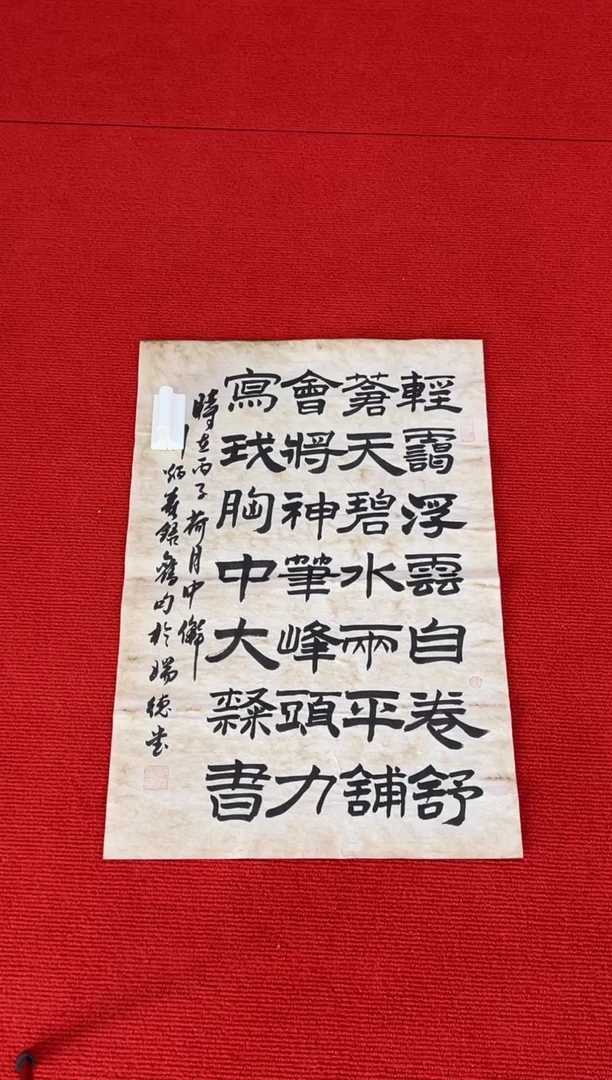 輕靄浮雲自卷舒
蒼天碧水兩平舖
會將神筆峰頭力
寫我胸中大隸書
時在丙子荷月中浣
炳春錄舊句於瑞德堂